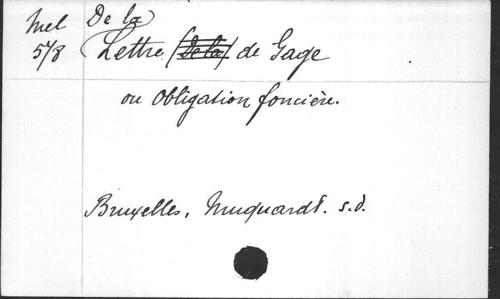 Mel De la
5/8 Lettre (De la) de Gage
ou Obligation foncière.
Bruxelles, Muquardt. s.d.